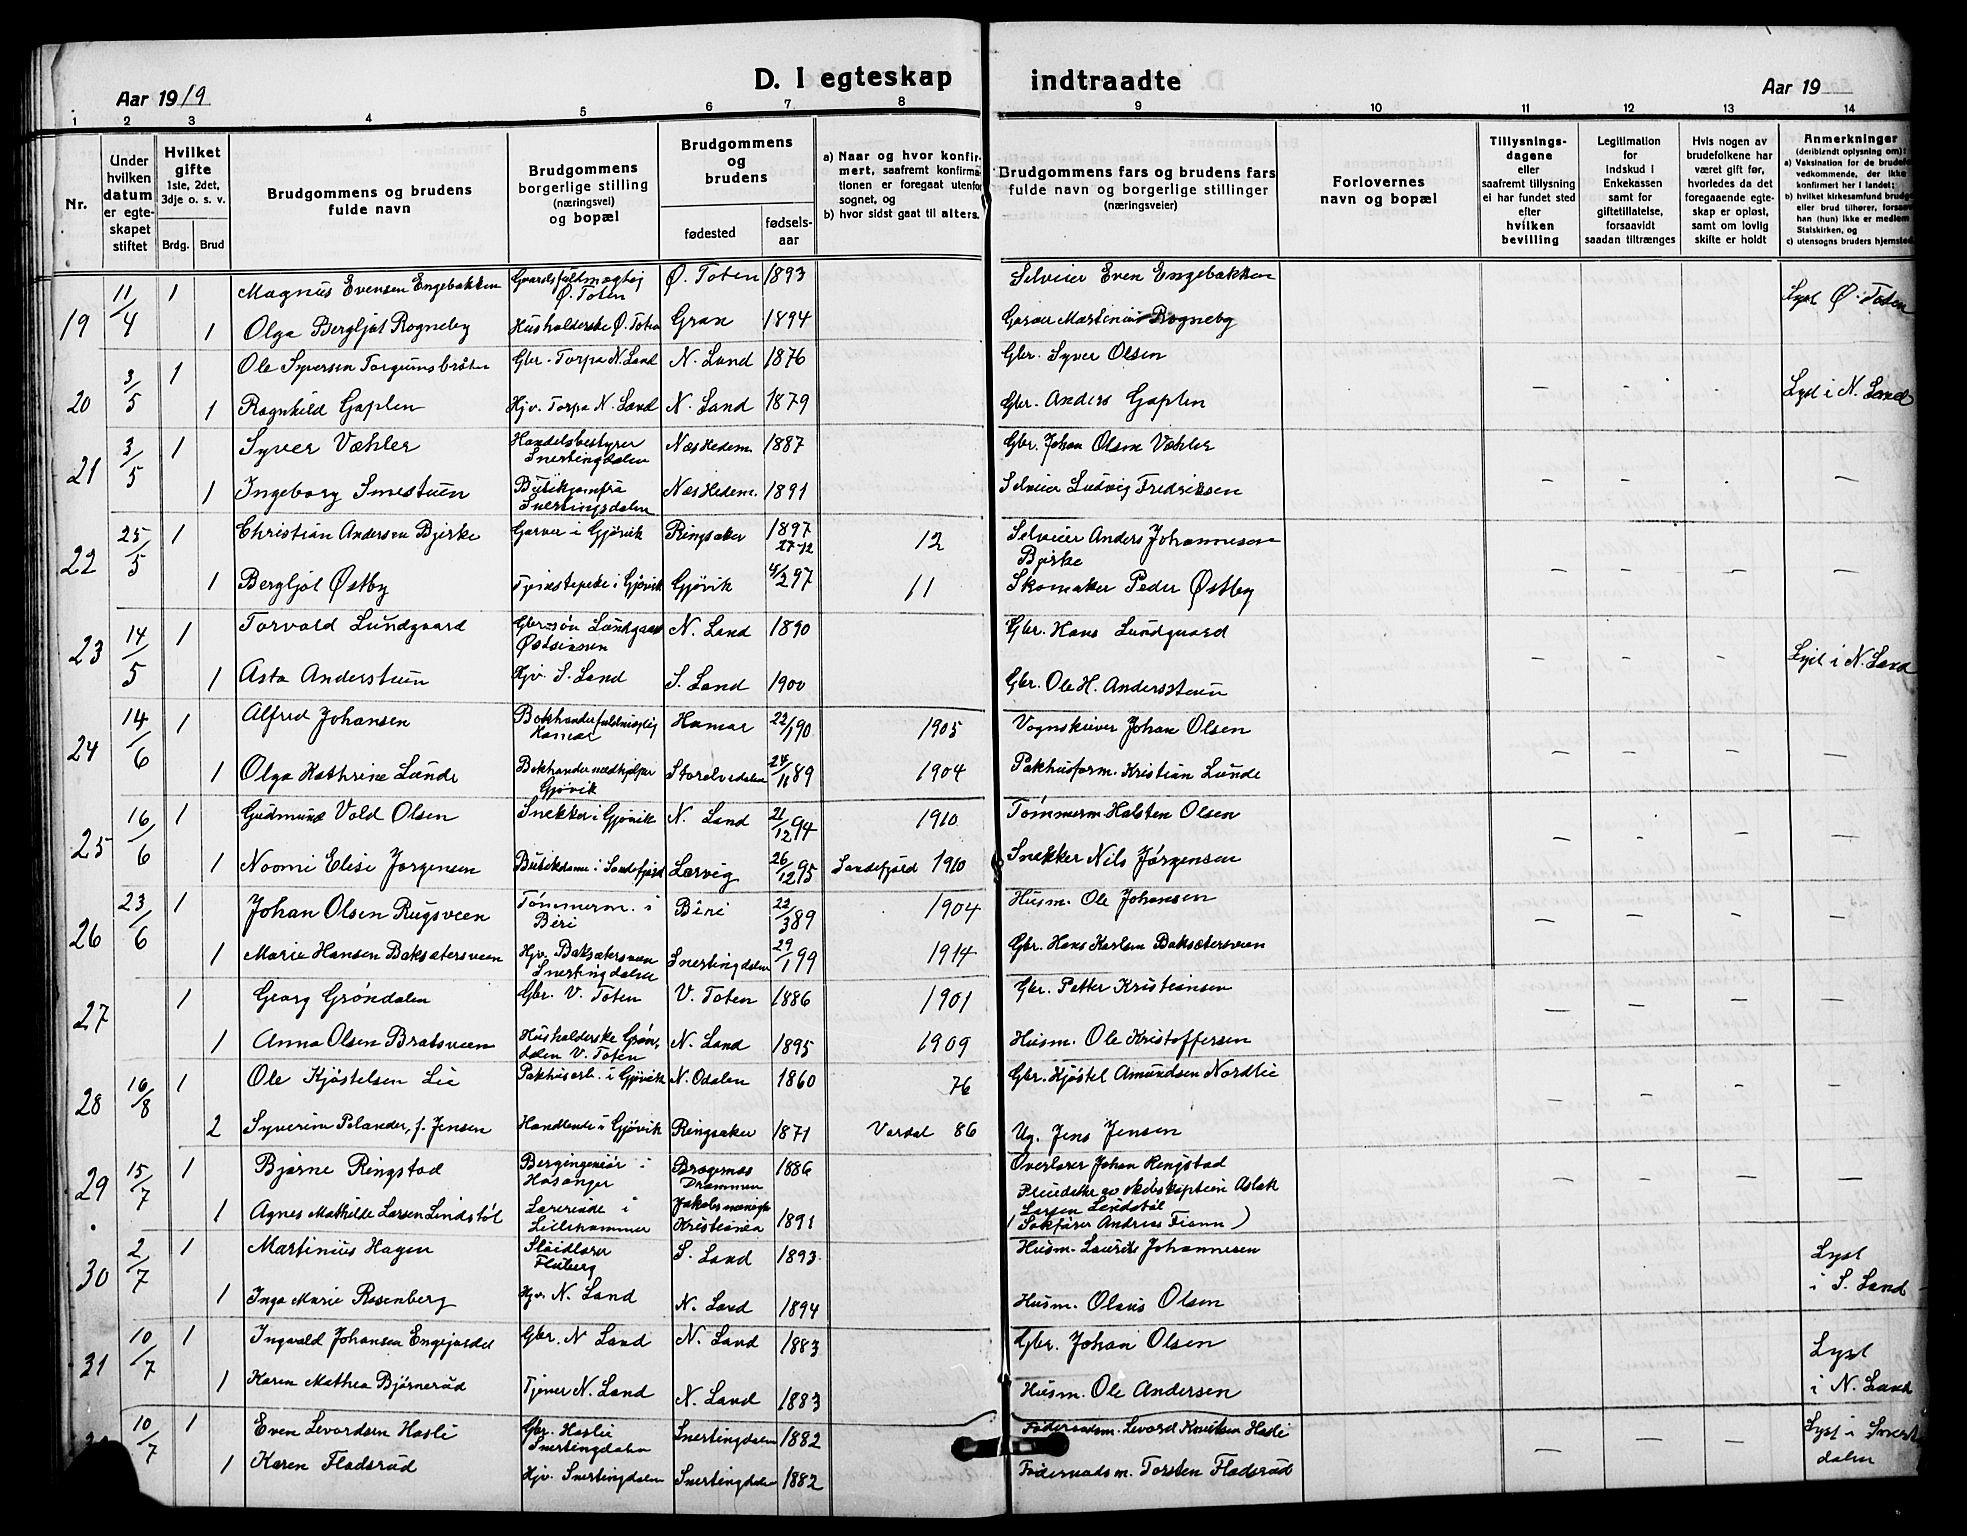 D. I egteskap indtraadte
Aar 1919
Aar 19
1 2 3 4 5 6 7 8 9 10 11 12 13 14
Nr.
Under hvilken datum er egteskapet stiftet
Hvilket gifte 1ste, 2det, 3dje o. s. v.
Brdg. Brud
Brudgommens og brudens fulde navn
Brudgommens borgerlige stilling (næringsvei) og bopæl
Brudgommens og brudens
fødested
fødselsaar
a) Naar og hvor konfirmert, saafremt konfirmationen er foregaat utenfor sognet, og
b) hvor sidst gaat til alters.
Brudgommens fars og brudens fars fulde navn og borgerlige stillinger (næringsveier)
Forlovernes navn og bopæl
Tillysningsdagene eller saafremt tillysning ei har fundet sted efter hvilken bevilling
Legitimation for Indskud i Enkekassen samt for giftetillatelse, forsaavidt saadan tiltrænges
Hvis nogen av brudefolkene har været gift før, hvorledes da det foregaaende egteskap er opløst, samt om lovlig skifte er holdt
Anmerkninger (deriblandt oplysning om):
19 11/4 1 Magnus Evensen Engebakken Gaardsfuldmægtig Ø. Toten Ø. Toten 1893 Selveier Even Engebakken Lyst Ø. Toten
1 Olga Bergljot Rogneby Husholderske Ø. Toten Gran 1894 Garver Martinius Rogneby
20 3/5 1 Ole Syversen Gbr. Torpa N. Land N. Land 1876 Gbr. Syver Olsen — — — Lyst i N. Land
1 Ragnhild Gaplen Hjv. Torpa N. Land N. Land 1879 Gbr. Anders Gaplen
21 3/5 1 Syver Væhler Handelsbestyrer Snertingdalen Næs Hedem. 1887 Gbr. Johan Olsen Væhler — — — —
1 Ingeborg Smestuen Butikjomfru Snertingdalen Næs Hedem. 1891 Selveier Ludvig Fredriksen
22 25/5 1 Christian Andersen Bjerke Garver i Gjøvik Ringsaker 1897 27-12 12 Selveier Anders Johannesen Bjerke — — — —
1 Bergljot Østby i Gjøvik Gjøvik 4/2 97 11 Skomaker Peder Østby
23 14/5 1 Torvald Lundgaard Gbr.søn Lundgaard N. Land 1890 Gbr. Hans Lundgaard — — — Lyst i N. Land
1 Asta Anderstuen Hjv. S. Land S. Land 1900 Gbr. Ole H. Andersstuen
24 14/6 1 Alfred Johansen Hamar Hamar 22/1 90 1905 Vognskriver Johan Olsen — — — —
1 Olga Kathrine Lunde Gjøvik Storelvedalen 24/11 89 1904 Pakhusform. Kristian Lunde
25 16/6 1 Gudmund Vold Olsen Snekker i Gjøvik N. Land 21/12 94 1910 Tømmerm Halsten Olsen — — — —
1 Noomi Elise Jørgensen Butikdame i Sandefjord Larvig 26/12 95 Sandefjord 1910 Snekker Nils Jørgensen
26 23/6 1 Johan Olsen Rugsveen Tømmerm. i Biri Biri 22/3 89 1904 Husm. Ole Johansen — — — —
1 Marie Hansen Baksætersveen Hjv. Baksætersveen Snertingdalen Snertingdalen 29/1 99 1914 Gbr. Hans Karlsen Baksætersveen
27 1 Georg Grøndalen Gbr. V. Toten V. Toten 1886 1901 Gbr. Petter Kristiansen — — — —
1 Anna Olsen Bratsveen Husholderske Grøndalen V. Toten N. Land 1895 1909 Husm. Ole Kristoffersen
28 16/8 1 Ole Kjøstelsen Lie Pakhusarb. i Gjøvik N. Odalen 1860 76 Gbr. Kjøstel Amundsen Nordlie — — — —
2 Syverine Pelander, f. Jensen Handlende i Gjøvik Ringsaker 1871 Vardal 86 Ug. Jens Jensen
29 15/7 1 Bjarne Ringstad Bergingeniør i Hosanger Bragernes Drammen 1886 Overlærer Johan Ringstad — — — —
1 Agnes Mathilde Larsen Lindstøl Lærerinde i Lillehammer Jakobs menigh Kristiania 1891 Pleiedatter av skibskaptein Aslak Larsen Lindstøl (Sakfører Andreas )
30 2/7 1 Martinius Hagen Sløidlærer Fluberg S. Land 1893 Husm. Laurits Johannesen Lyst i S. Land
1 Inga Marie Rosenberg Hjv. N. Land N. Land 1894 Husm. Olaus Olsen
31 10/7 1 Ingvald Johansen Gbr. N Land N. Land 1883 Gbr. Johan Olsen Lyst i N. Land
1 Karen Mathea Bjørnerud Tjener N. Land N. Land 1883 Husm. Ole Andersen
10/7 1 Even Levordsen Hasli Gbr. Haslie Snertingdalen Snertingdalen 1882 Føderaadsm. Levord Knutsen Hasli — — — Lyst i Snertdalen
1 Karen Fladsrud Hjv. Snertingdalen Snertingdalen 1882 Føderaadsm. Torsten Fladsrud